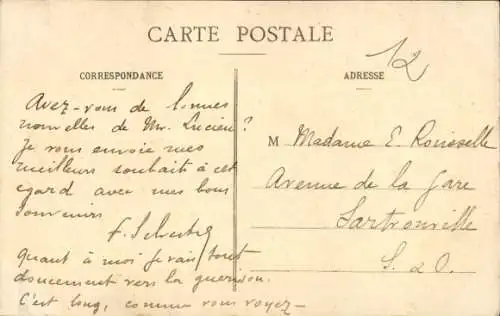 CARTE POSTALE
12
CORRESPONDANCE
ADRESSE
Avez-vous de bonnes
nouvelles de Mr. Lucien?
Je vous envoie mes
meilleurs souhaits à cet
egard avec mes bons
souvenirs
F. Silvestre
Quant à moi je vais tout
doucement vers la guérison.
C'est long, comme vous voyez-
M Madame E. Rousselle
Avenue de la Gare
Sartrouville
S. & O.